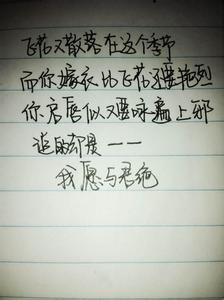 飞花又散落在这个季节
而你嫁衣比飞花还要艳烈
你启唇似又要咏遍上邪
说的却是——
我愿与君绝